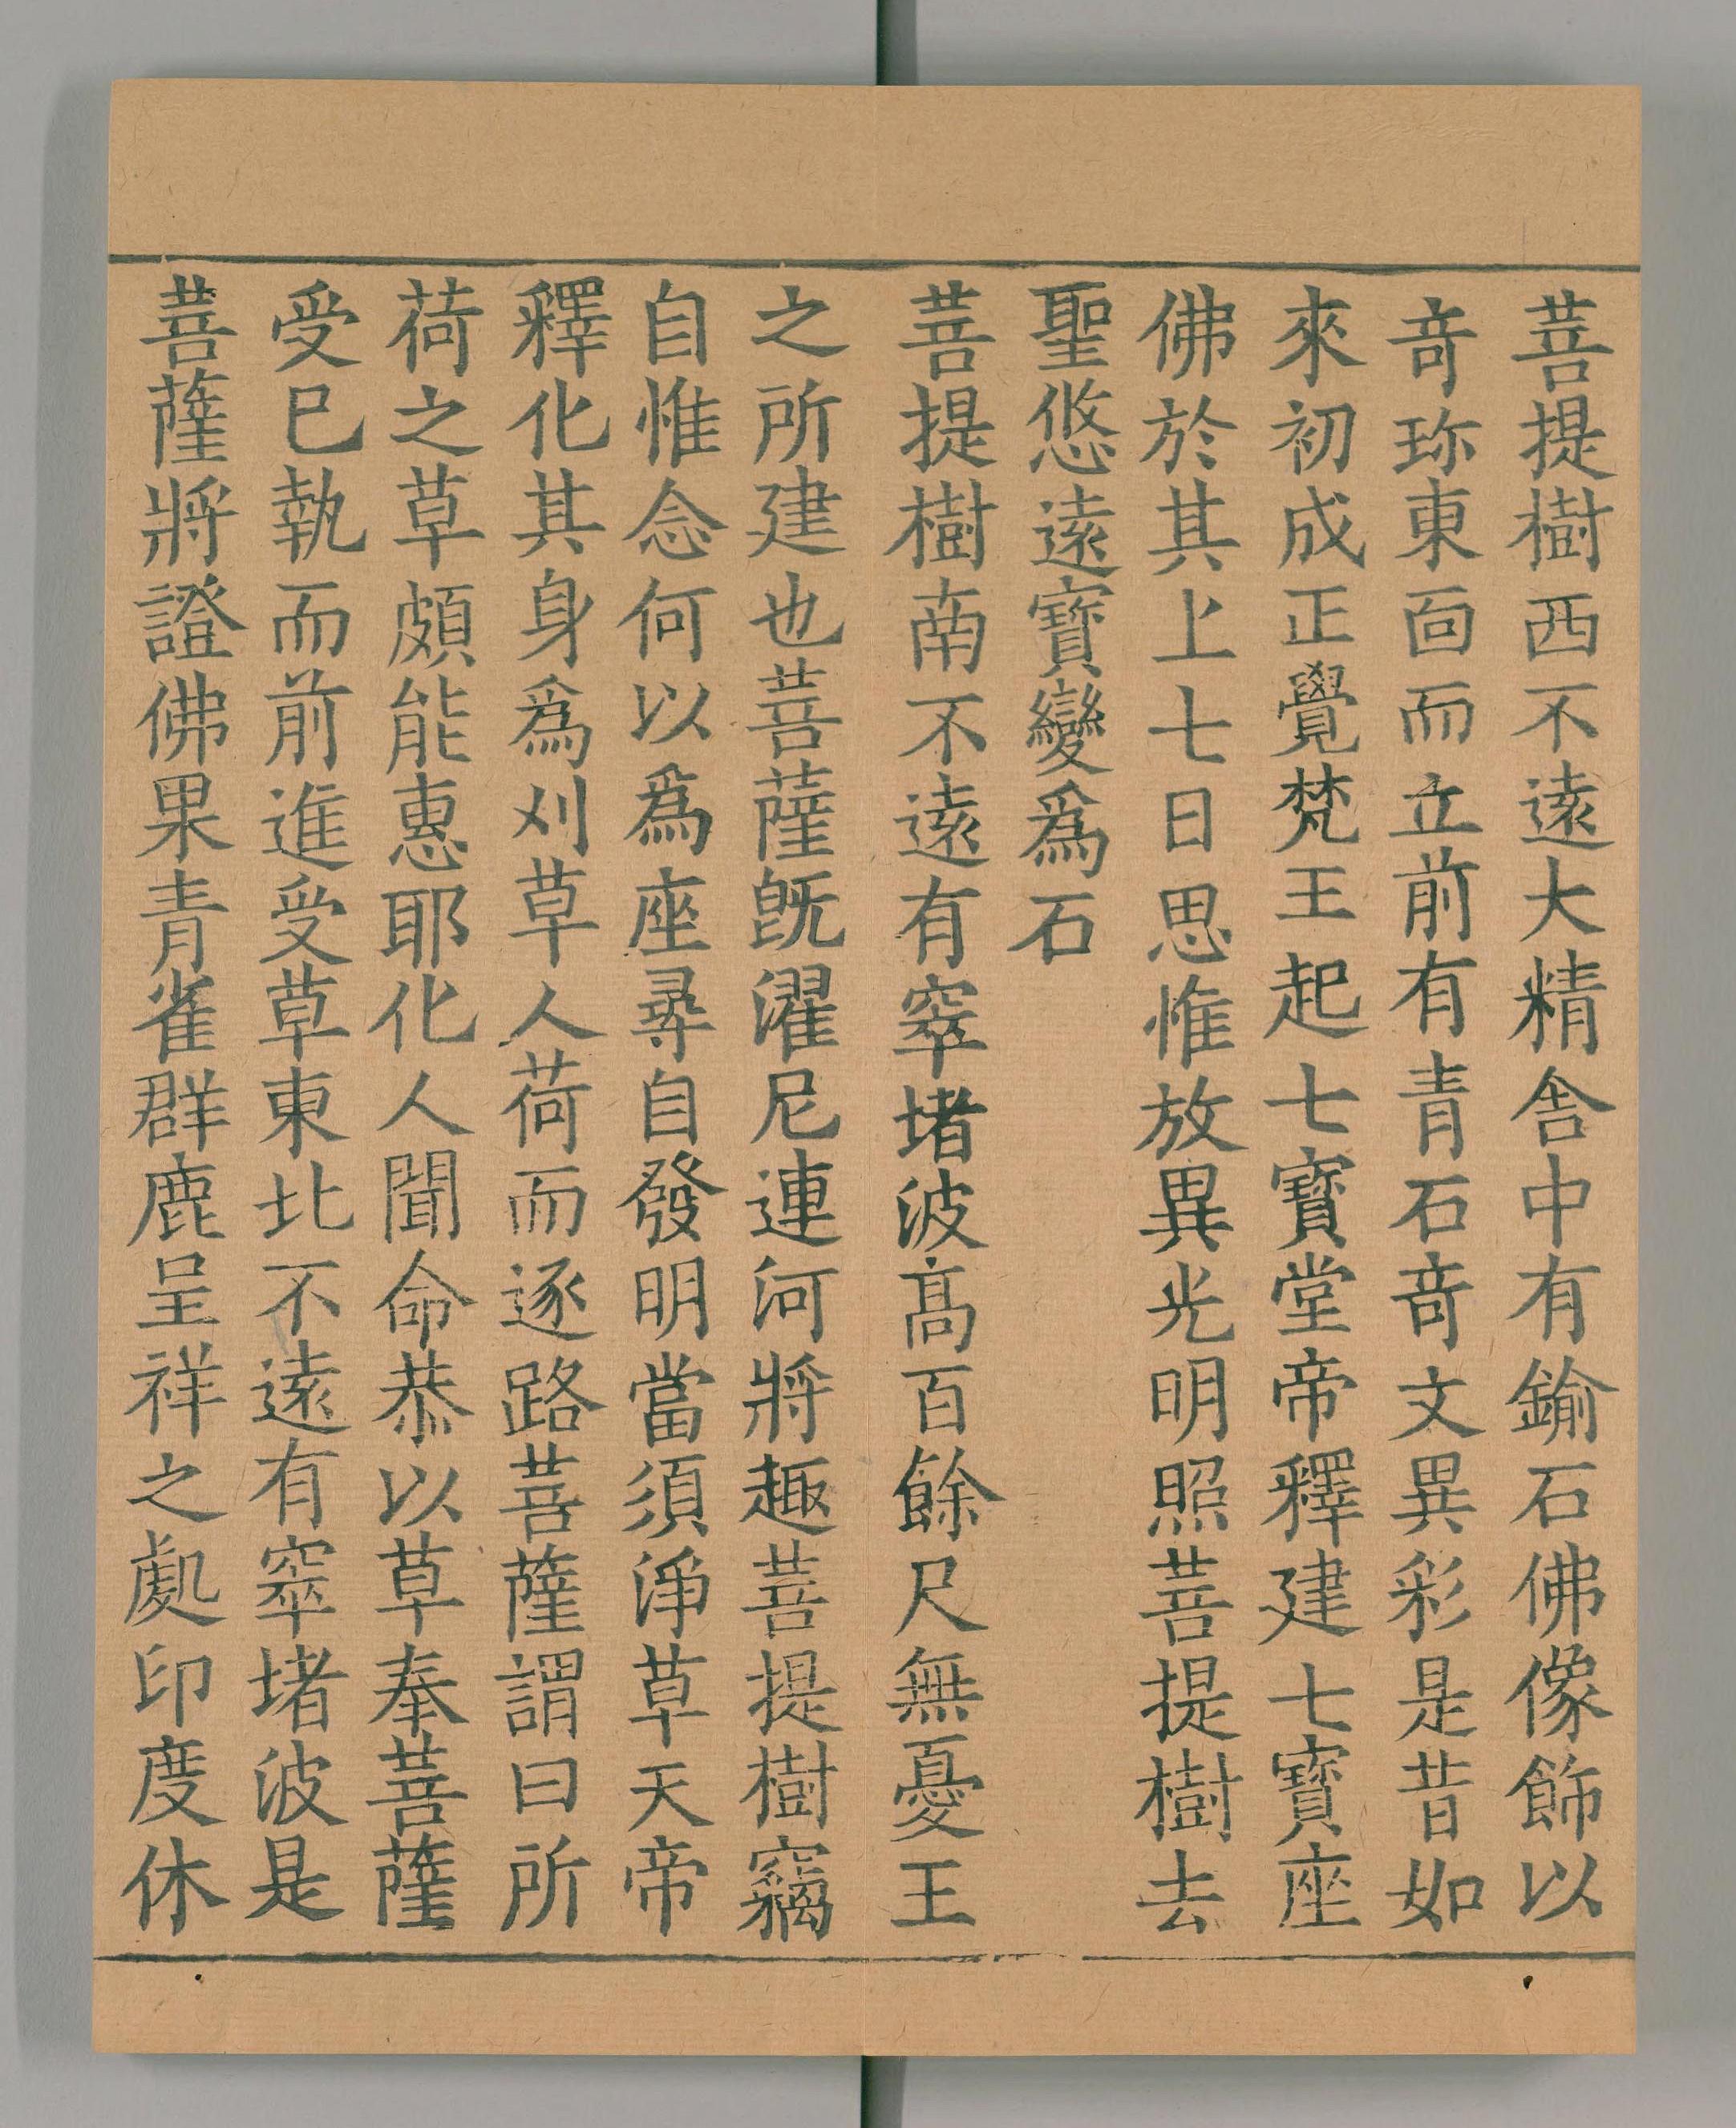 菩提樹西不遠大精舎中有鍮石佛像飾以
竒珎東面而立前有青石竒文異彩是昔如
來初成正覺梵王起七寶堂帝釋建七寶座
佛於其上七日思惟放異光明照菩提樹去
聖悠遠寶變爲石
菩提樹南不遠有窣堵波髙百餘尺無憂王
之所建也菩薩旣濯尼連河將趣菩提樹竊
自惟念何以爲座尋自發明當須淨草天帝
釋化其身爲刈草人荷而逐路菩薩謂曰所
荷之草頗能惠耶化人聞命恭以草奉菩薩
受已執而前進受草東北不遠有窣堵波是
菩薩將證佛果青雀群鹿呈祥之處印度休